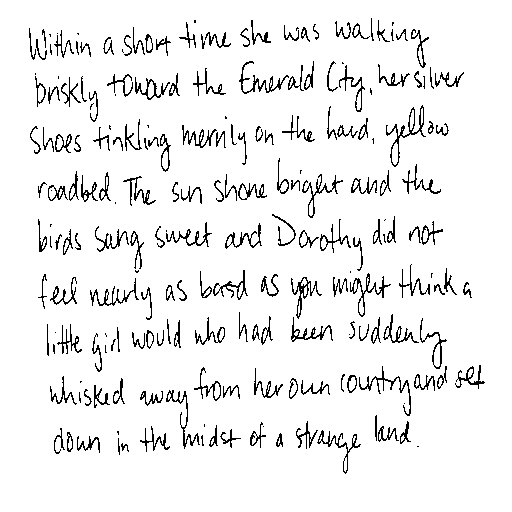 Within a short time she was walking
briskly toward the Emerald City, her silver
shoes tinkling merrily on the hard, yellow
roadbed. The sun shone bright and the
birds sang sweet and Dorothy did not
feel nearly as bad as you might think a
little girl would who had been suddenly
whisked away from her own country and set
down in the midst of a strange land.